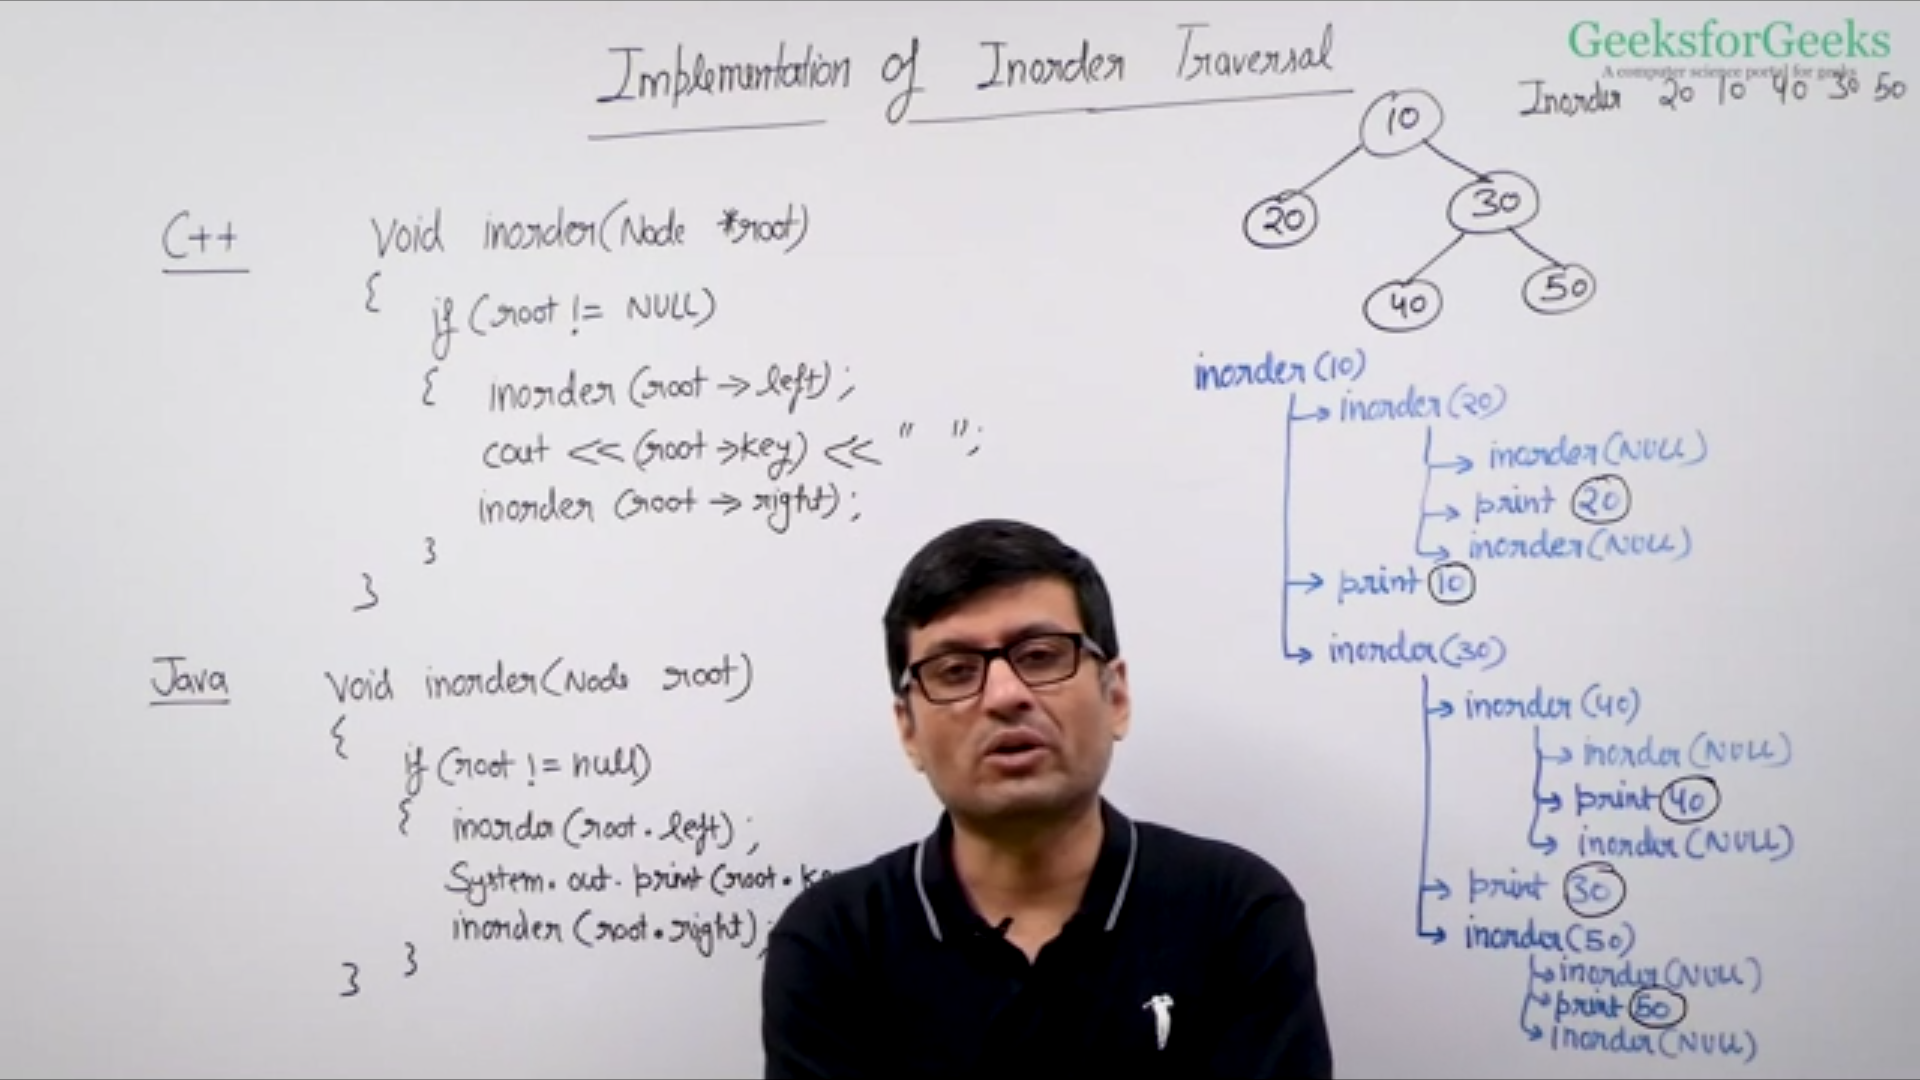 GeeksforGeeks
A computer science portal for geeks
Implementation of Inorder Traversal
Inorder 20 10 40 30 50
10
20 30
40 50
C++
void inorder(Node *root)
{
if (root != NULL)
{ inorder (root → left);
cout << (root →key) << " ";
inorder (root → right);
}
}
Java
void inorder(Node root)
{
if (root != null)
{ inorder (root.left);
System.out.print(root.
inorder (root.right);
}
}
inorder (10)
inorder(20)
inorder(NULL)
print 20
inorder(NULL)
print 10
inorder(30)
inorder (40)
inorder(NULL)
print 40
inorder(NULL)
print 30
inorder(50)
inorder(NULL)
print 50
inorder(NULL)